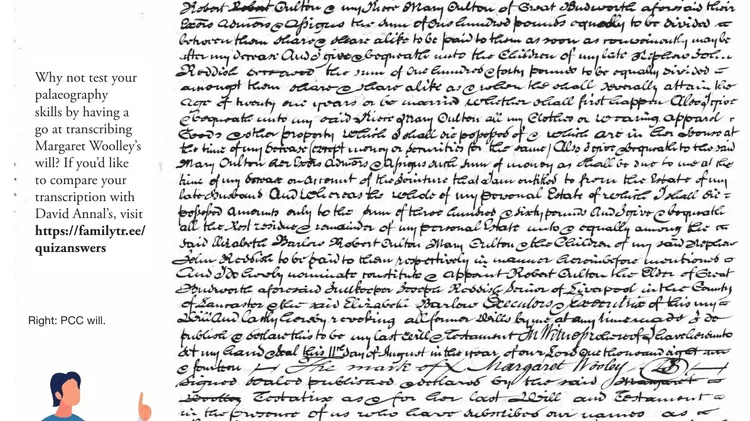 Why not test your
palaeography
skills by having a
go at transcribing
Margaret Woolley's
will? If you'd like
to compare your
transcription with
David Annal's, visit
https://familytr.ee/
quizanswers
Right: PCC will.
Robert Oulton & my Niece Mary Oulton of Great Budworth aforesaid their
Exōrs Admōrs & Assigns the sum of One hundred pounds equally to be divided
between them share & share alike to be paid to them as soon as conveniently may be
after my decease And I give & bequeath unto the Children of my late Nephew John
Reddish deceased the sum of One hundred & forty pounds to be equally divided
amongst them share & share alike as & when the shall severally attain the
Age of twenty one years or be married whether shall first happen Also I give
& bequeath unto my said Niece Mary Oulton all my Clothes or wearing apparel
Goods & other property which I shall die possessed of & which are in her house at
the time of my decease except money or securities for the same Also I give & bequeath to the said
Mary Oulton her Exōrs Admōrs & Assigns such sum of money as shall be due to me at the
time of my decease on account of the Jointure that I am entitled to from the Estate of my
late Husband And whereas the whole of my personal Estate of which I shall die
possessed amounts only to the sum of three hundred & sixty pounds And I give & bequeath
all the rest residue & remainder of my personal Estate unto & equally among the
said Elizabeth Barlow Robert Oulton Mary Oulton & the Children of my said Nephew
John Reddish to be paid to them respectively in manner hereinbefore mentioned
And I do hereby nominate constitute & appoint Robert Oulton the Elder of Great
Budworth aforesaid Innkeeper Joseph Reddish Senior of Liverpool in the County
of Lancaster & the said Elizabeth Barlow Executors & Executrix of this my
Will And lastly hereby revoking all former Wills by me at any time made I do
publish & declare this to be my last Will & Testament In Witness whereof I have hereunto
set my hand & Seal this 11th Day of August in the year of our Lord One thousand eight
& fourteen The mark of X Margaret Wooley
Signed Sealed published & declared by the said Margaret
Testatrix as & for her last Will and Testament
in the presence of us who have subscribed our names as